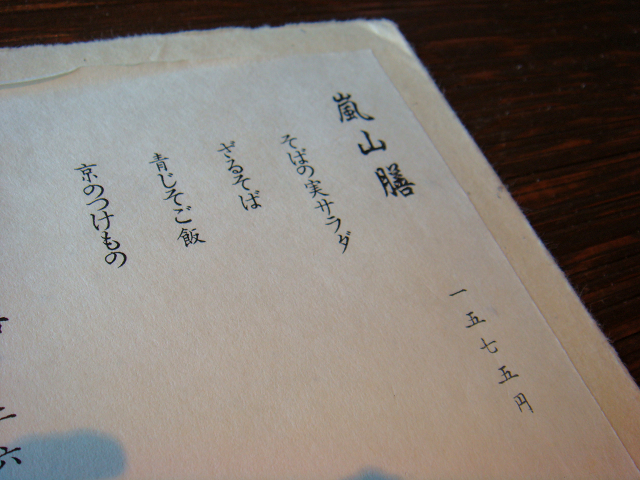 嵐山膳
一五七五円
そばの実サラダ
ざるそば
青じそご飯
京のつけもの
二六